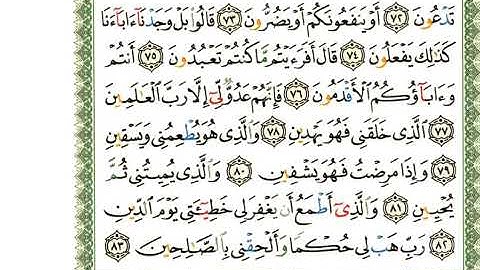 تَدْعُونَ ﴿٧٢﴾ أَوْ يَنفَعُونَكُمْ أَوْ يَضُرُّونَ ﴿٧٣﴾ قَالُوا۟ بَلْ وَجَدْنَآ ءَابَآءَنَا
كَذَٰلِكَ يَفْعَلُونَ ﴿٧٤﴾ قَالَ أَفَرَءَيْتُم مَّا كُنتُمْ تَعْبُدُونَ ﴿٧٥﴾ أَنتُمْ
وَءَابَآؤُكُمُ ٱلْأَقْدَمُونَ ﴿٧٦﴾ فَإِنَّهُمْ عَدُوٌّ لِّىٓ إِلَّا رَبَّ ٱلْعَٰلَمِينَ
﴿٧٧﴾ ٱلَّذِى خَلَقَنِى فَهُوَ يَهْدِينِ ﴿٧٨﴾ وَٱلَّذِى هُوَ يُطْعِمُنِى وَيَسْقِينِ
﴿٧٩﴾ وَإِذَا مَرِضْتُ فَهُوَ يَشْفِينِ ﴿٨٠﴾ وَٱلَّذِى يُمِيتُنِى ثُمَّ
يُحْيِينِ ﴿٨١﴾ وَٱلَّذِىٓ أَطْمَعُ أَن يَغْفِرَ لِى خَطِيٓـَٔتِى يَوْمَ ٱلدِّينِ
﴿٨٢﴾ رَبِّ هَبْ لِى حُكْمًا وَأَلْحِقْنِى بِٱلصَّٰلِحِينَ ﴿٨٣﴾